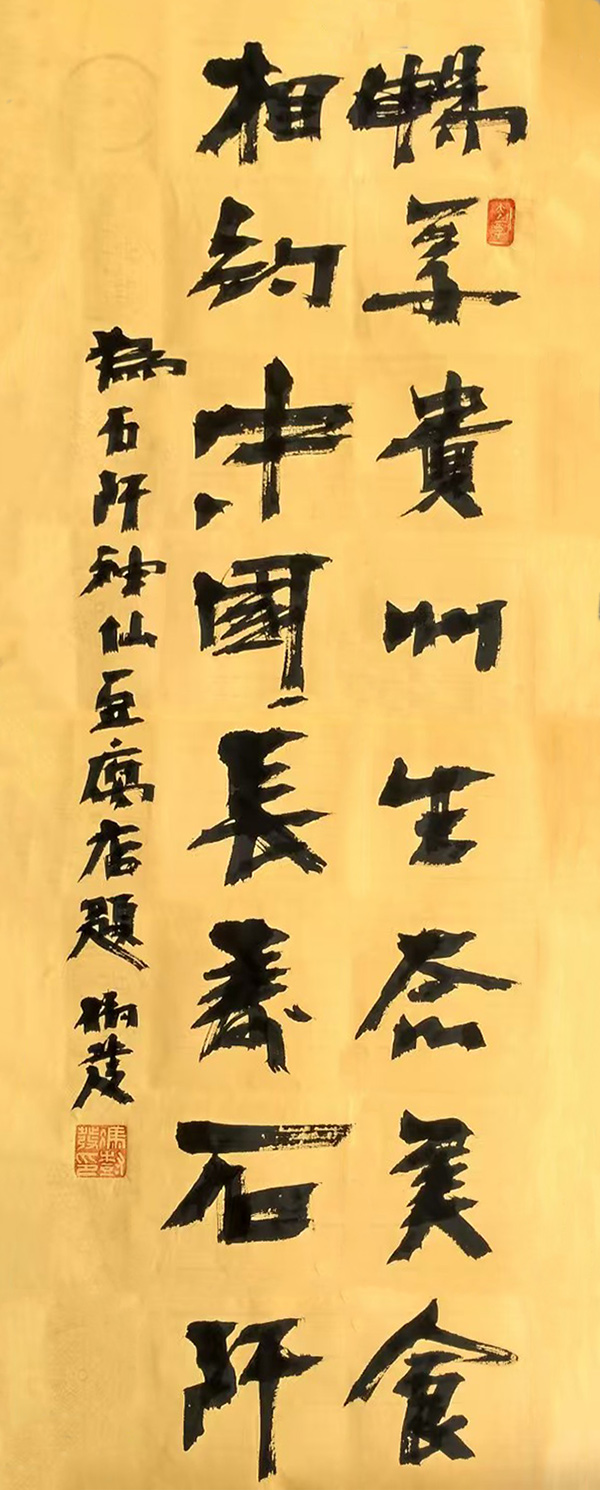 暢享貴州生态美食
相约中國長壽石阡
為石阡神仙豆腐店題 樹茂